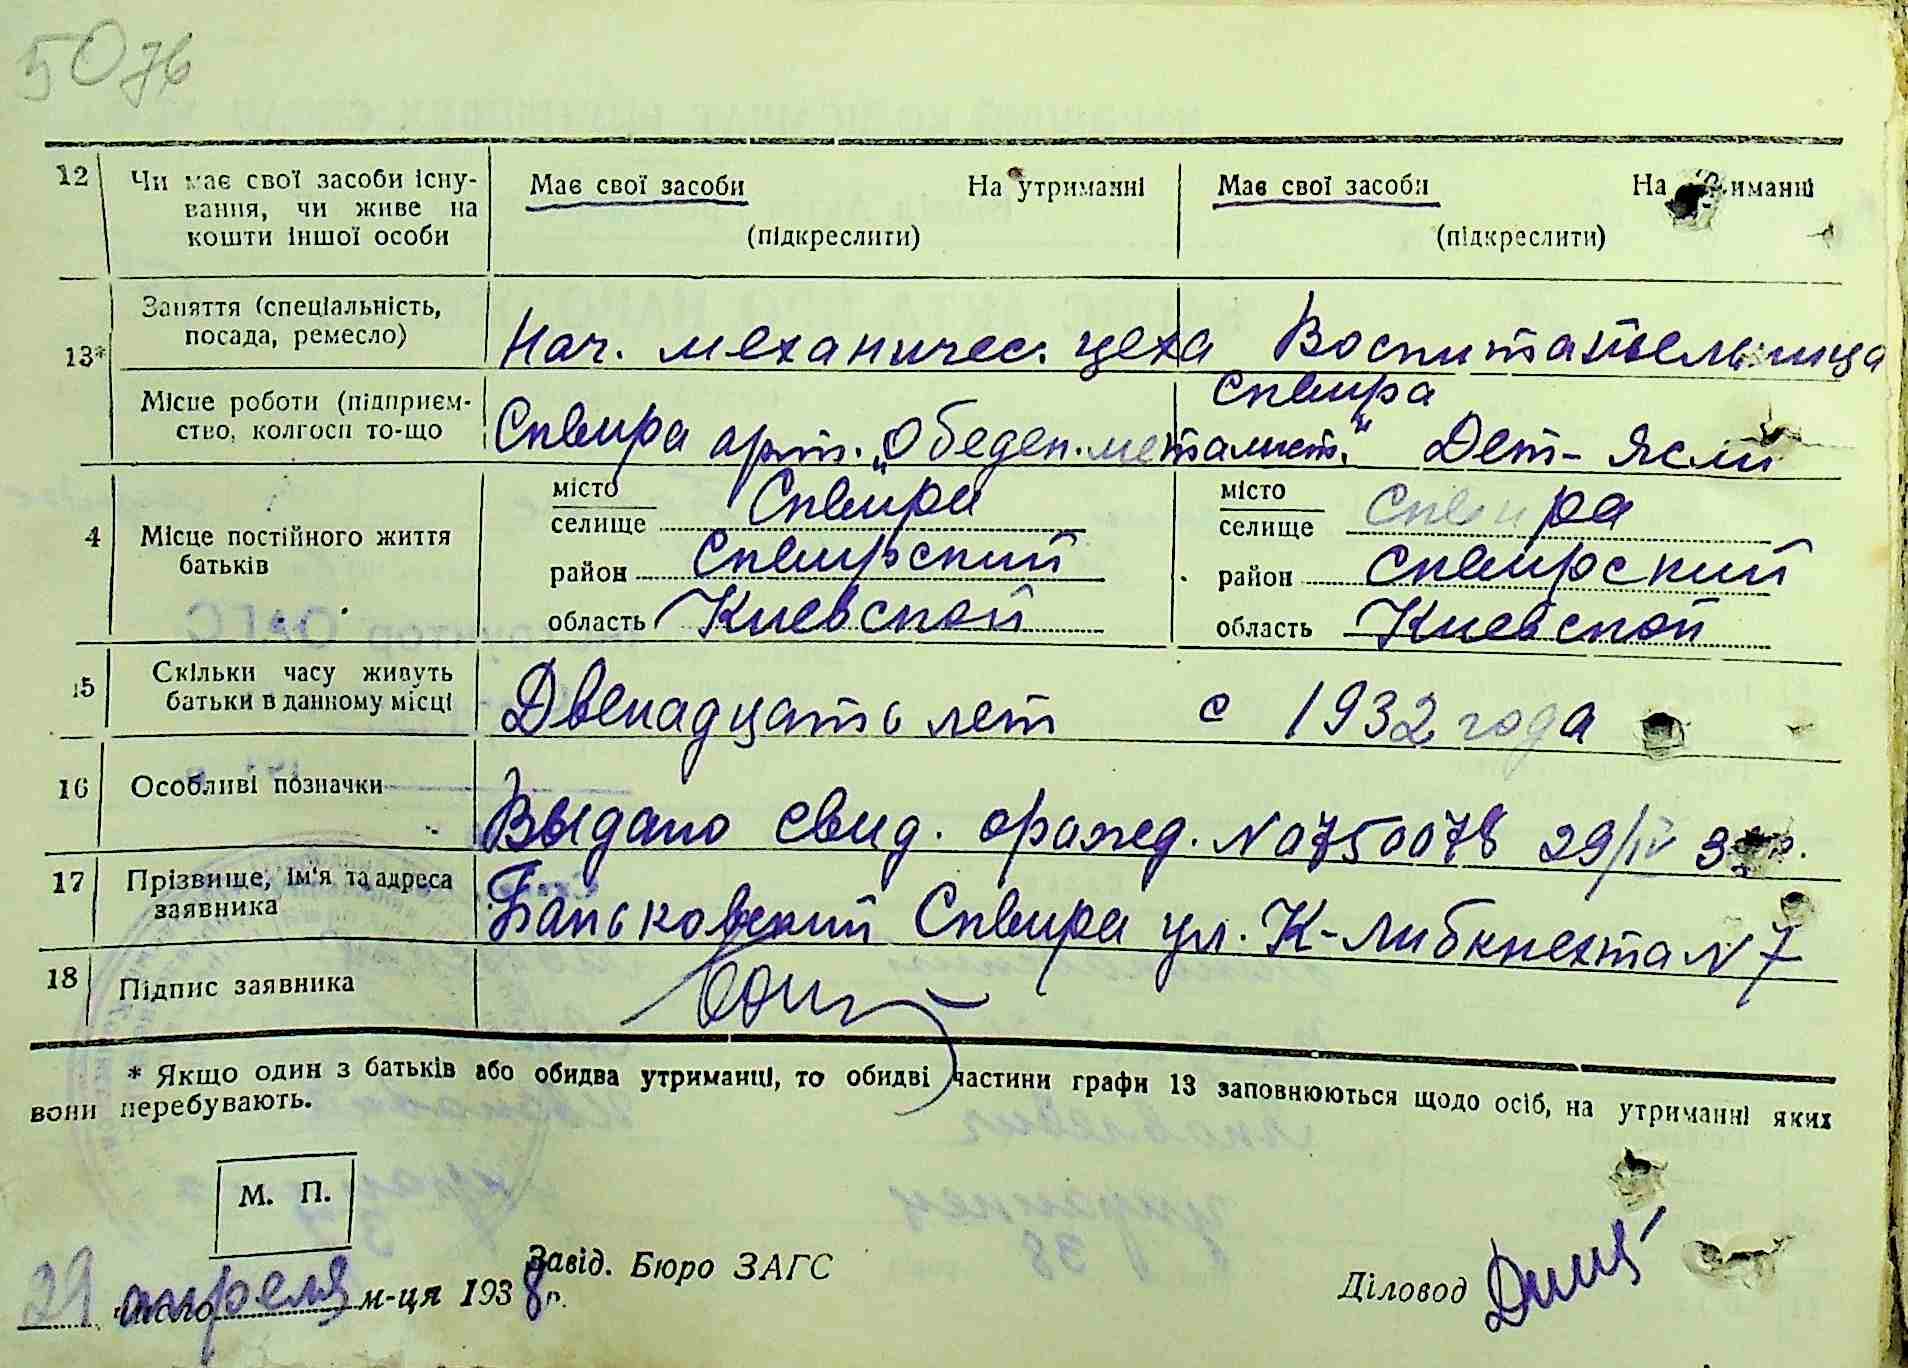 5076
12 Чи має свої засоби існу- Має свої засоби На утриманні Має свої засоби На утриманні
вання, чи живе на
кошти іншої особи (підкреслити) (підкреслити)
Заняття (спеціальність,
посада, ремесло) Нач. механичес. цеха Воспитательница
13*
Сквира
Місце роботи (підприєм-
ство, колгосп то-що Сквира арт. „Обеден. металист." Дет-Ясли
місто Сквира місто Сквира
селище селище
4 Місце постійного життя
батьків район Сквирский район Сквирский
область Киевской область Киевской
15 Скільки часу живуть
батьки в данному місці Двенадцать лет с 1932 года
16 Особливі позначки Выдано свид. о рожд. N 0750078 29/IV 38 р.
17 Прізвище, ім'я та адреса
заявника Баньковский Сквира ул. К-Либкнехта N 7
18 Підпис заявника
* Якщо один з батьків або обидва утриманці, то обидві частини графи 13 заповнюються щодо осіб, на утриманні яких
вони перебувають.
М. П.
29 число апреля м-ця 1938 р. Завід. Бюро ЗАГС
Діловод